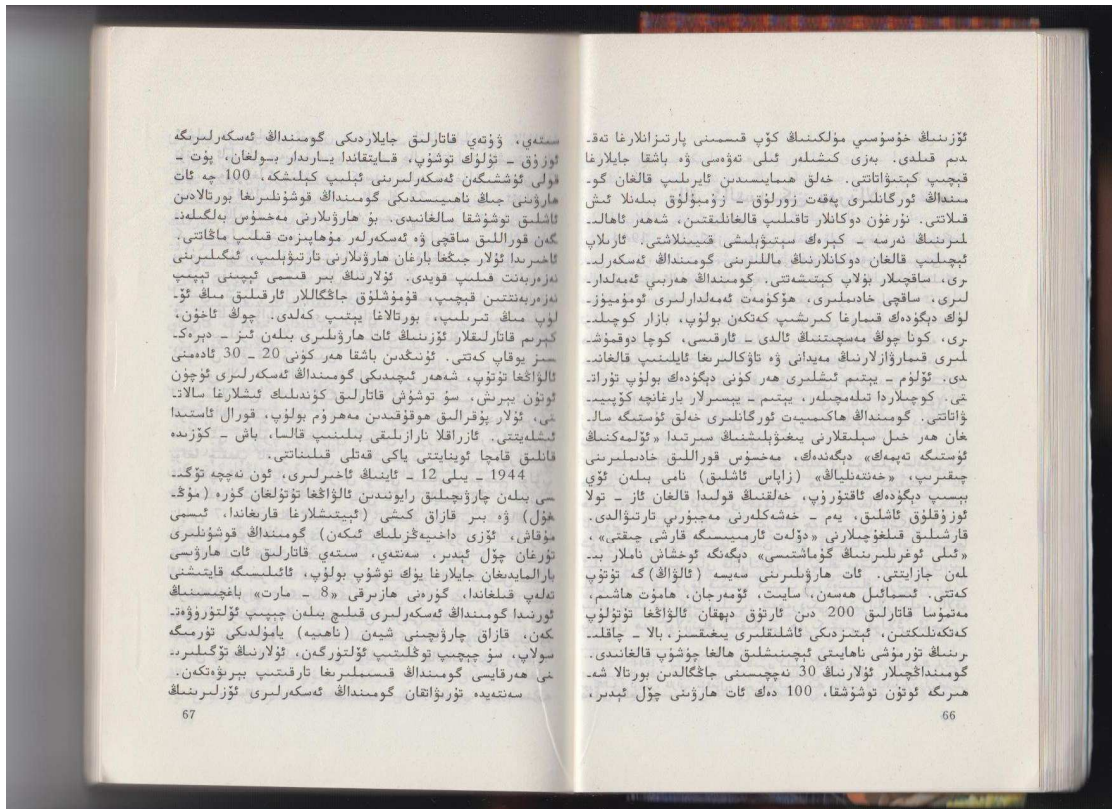 ئۆزىنىڭ خۇسۇسىي مۈلكىنىڭ كۆپ قىسمىنى پارتىزانلارغا تەقـ
دىم قىلدى. بەزى كىشىلەر ئىلى تەۋەسى ۋە باشقا جايلارغا
قېچىپ كېتىۋاتاتتى. خەلق ھىمايىسىدىن ئايرىلىپ قالغان گوـ
مىنداڭ ئورگانلىرى پەقەت زورلۇق ـ زومبۇلۇق بىلەنلا ئىش
قىلاتتى. نۇرغۇن دوكانلار تاقىلىپ قالغانلىقتىن، شەھەر ئاھالـ
لىرىنىڭ نەرسە ـ كېرەك سېتىۋېلىشى قىيىنلاشتى. ئارىلاپ
ئېچىلىپ قالغان دوكانلارنىڭ ماللىرىنى گومىنداڭ ئەسكەرلىـ
رى، ساقچىلار بۇلاپ كېتىشەتتى. گومىنداڭ ھەربىي ئەمەلدارـ
لىرى، ساقچى خادىملىرى، ھۆكۈمەت ئەمەلدارلىرى ئومۇميۈزـ
لۈك دېگۈدەك قىمارغا كىرىشىپ كەتكەن بولۇپ، بازار كوچىلىـ
رى، كونا چوڭ مەسچىتنىڭ ئالدى ـ ئارقىسى، كوچا دوقمۇشـ
لىرى قىمارۋازلارنىڭ مەيدانى ۋە تاۋكالىرىغا ئايلىنىپ قالغانـ
دى. ئۆلۈم ـ يېتىم ئىشلىرى ھەر كۈنى دېگۈدەك بولۇپ تۇراتـ
تى. كوچىلاردا تىلەمچىلەر، يېتىم ـ يېسىرلار بارغانچە كۆپىيىـ
ۋاتاتتى. گومىنداڭ ھاكىمىيەت ئورگانلىرى خەلق ئۈستىگە سالـ
غان ھەر خىل سېلىقلارنى يىغىۋېلىشنىڭ سىرتىدا «ئۆلمەكنىڭ
ئۈستىگە تەپمەك» دېگەندەك، مەخسۇس قوراللىق خادىملىرىنى
چىقىرىپ، «خەنتەنلياڭ» (زاپاس ئاشلىق) نامى بىلەن ئۆي
بېسىپ دېگۈدەك ئاقتۇرۇپ، خەلقنىڭ قولىدا قالغان ئاز ـ تولا
ئوزۇقلۇق ئاشلىق، يەم ـ خەشەكلەرنى مەجبۇرىي تارتىۋالدى.
قارشىلىق قىلغۇچىلارنى «دۆلەت ئارمىيىسىگە قارشى چىقتى»،
«ئىلى ئوغرىلىرىنىڭ گۇماشتىسى» دېگەنگە ئوخشاش ناملار بىـ
لەن جازايتتى. ئات ھارۋىلىرىنى سەيسە (ئالۋاڭ)گە تۇتۇپ
كەتتى. ئىسمائىل ھەسەن، سايىت، ئۆمەرجان، ھامۇت ھاشىم،
مەتمۇسا قاتارلىق 200 دىن ئارتۇق دېھقان ئالۋاڭغا تۇتۇلۇپ
كەتكەنلىكتىن، ئېتىزدىكى ئاشلىقلىرى يىغىقسىز، بالا ـ چاقىلىـ
رىنىڭ تۇرمۇشى ناھايىتى ئېچىنىشلىق ھالغا چۈشۈپ قالغانىدى.
گومىنداڭچىلار ئۇلارنىڭ 30 نەچچىسىنى جاڭگالدىن بورتالا شەـ
ھىرىگە ئوتۇن توشۇشقا، 100 دەك ئات ھارۋىنى چۆل ئېدىر،
66
سىتەي، ۋۇتەي قاتارلىق جايلاردىكى گومىنداڭ ئەسكەرلىرىگە
ئوزۇق ـ تۈلۈك توشۇپ، قايتقاندا يارىدار بولغان، پۇت ـ
قولى ئۈششىگەن ئەسكەرلىرىنى ئېلىپ كېلىشكە، 100 چە ئات
ھارۋىنى جىڭ ناھىيىسىدىكى گومىنداڭ قوشۇنلىرىغا بورتالادىن
ئاشلىق توشۇشقا سالغانىدى. بۇ ھارۋىلارنى مەخسۇس بەلگىلەنـ
گەن قوراللىق ساقچى ۋە ئەسكەرلەر مۇھاپىزەت قىلىپ ماڭاتتى.
ئاخىرىدا ئۇلار جىڭغا بارغان ھارۋىلارنى تارتىۋېلىپ، ئىگىلىرىنى
نەزەربەنت قىلىپ قويدى. ئۇلارنىڭ بىر قىسمى ئېپىنى تېپىپ
نەزەربەنتتىن قېچىپ، قۇمۇشلۇق جاڭگاللار ئارقىلىق مىڭ ئۆـ
لۈپ مىڭ تىرىلىپ، بورتالاغا يېتىپ كەلدى. چوڭ ئاخۇن،
كېرىم قاتارلىقلار ئۆزىنىڭ ئات ھارۋىلىرى بىلەن ئىز ـ دېرەكـ
سىز يوقاپ كەتتى. ئۇنىڭدىن باشقا ھەر كۈنى 20 ـ 30 ئادەمنى
ئالۋاڭغا تۇتۇپ، شەھەر ئىچىدىكى گومىنداڭ ئەسكەرلىرى ئۈچۈن
ئوتۇن يېرىش، سۇ توشۇش قاتارلىق كۈندىلىك ئىشلارغا سالاتـ
تى، ئۇلار پۇقرالىق ھوقۇقىدىن مەھرۇم بولۇپ، قورال ئاستىدا
ئىشلەيتتى. ئازراقلا نارازىلىقى بىلىنىپ قالسا، باش ـ كۆزىدە
قانلىق قامچا ئوينايتتى ياكى قەتلى قىلىناتتى.
1944 ـ يىلى 12 ـ ئاينىڭ ئاخىرلىرى، ئون نەچچە تۆگىـ
سى بىلەن چارۋىچىلىق رايونىدىن ئالۋاڭغا تۇتۇلغان گۈرە (موڭـ
غۇل) ۋە بىر قازاق كىشى (ئېيتىشلارغا قارىغاندا، ئىسمى
مۇقاش، ئۆزى داخىيەڭزىلىك ئىكەن) گومىنداڭ قوشۇنلىرى
تۇرغان چۆل ئېدىر، سەنتەي، سىتەي قاتارلىق ئات ھارۋىسى
بارالمايدىغان جايلارغا يۈك توشۇپ بولۇپ، ئائىلىسىگە قايتىشنى
تەلەپ قىلغاندا، گۈرەنى ھازىرقى «8 ـ مارت» باغچىسىنىڭ
ئورنىدا گومىنداڭ ئەسكەرلىرى قىلىچ بىلەن چېپىپ ئۆلتۈرۈۋەتـ
كەن، قازاق چارۋىچىنى شيەن (ناھىيە) يامۇلدىكى تۈرمىگە
سولاپ، سۇ چېچىپ توڭلىتىپ ئۆلتۈرگەن، ئۇلارنىڭ تۆگىلىرىـ
نى ھەرقايسى گومىنداڭ قىسىملىرىغا تارقىتىپ بېرىۋەتكەن.
سەنتەيدە تۇرىۋاتقان گومىنداڭ ئەسكەرلىرى ئۆزلىرىنىڭ
67